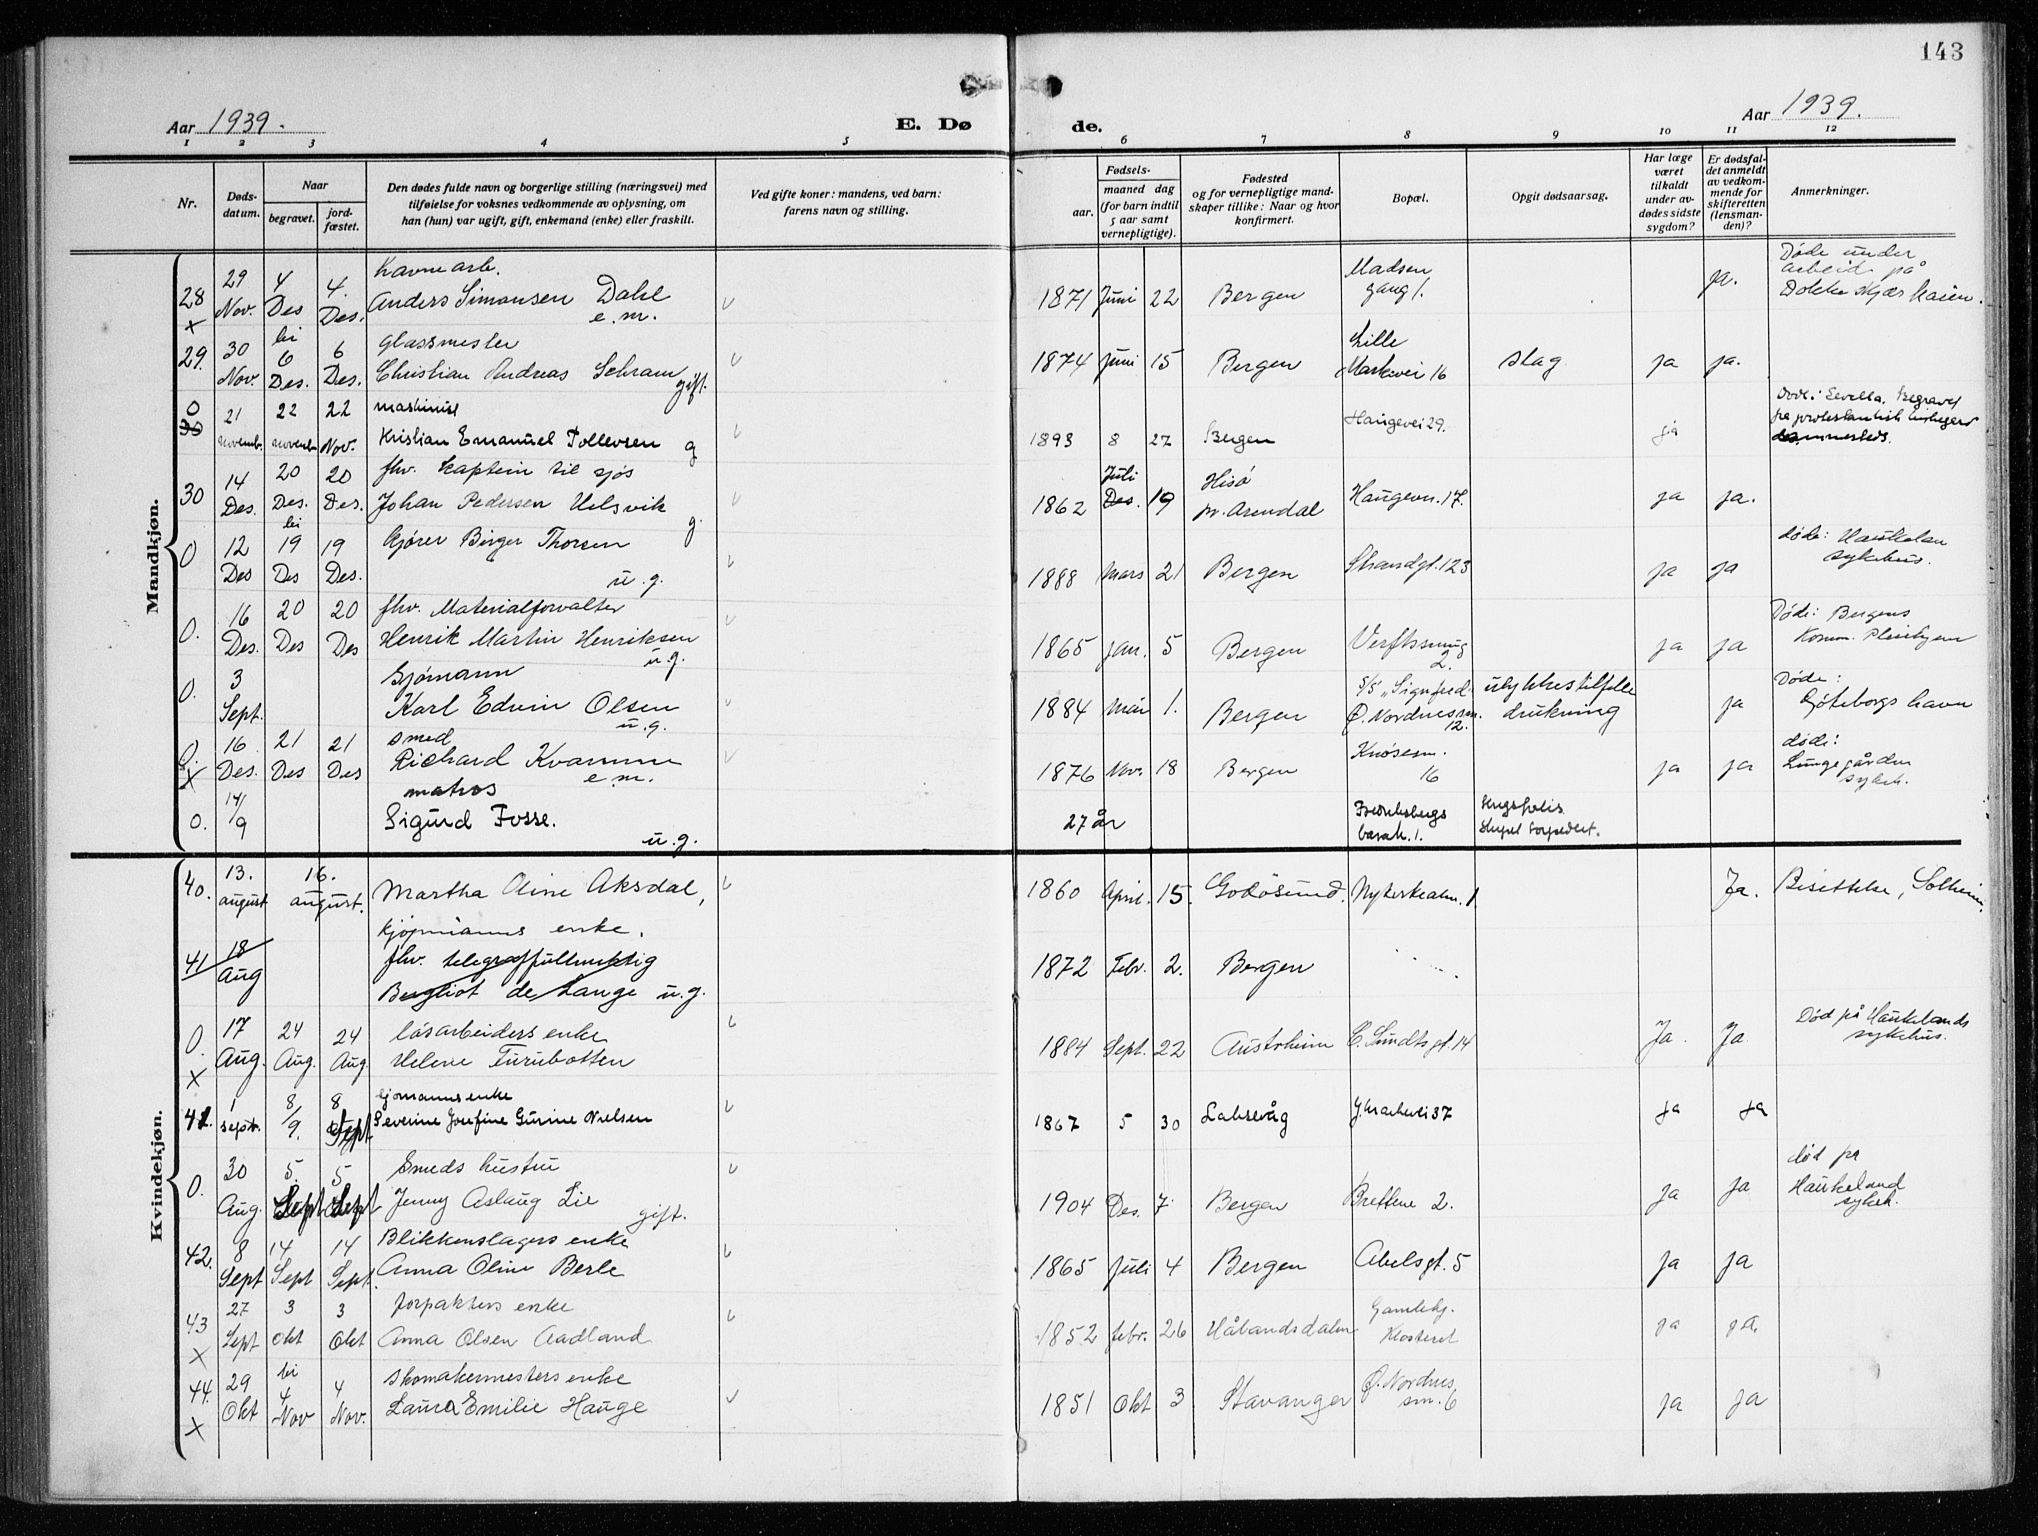 143
Aar 1939.
E. Dø
de.
Aar 1939.
1 2 3 4 5 6 7 8 9 10 11 12
Nr.
Døds-
datum.
Naar
begravet.
jord-
fæstet.
Den dødes fulde navn og borgerlige stilling (næringsvei) med
tilføielse for voksnes vedkommende av oplysning, om
han (hun) var ugift, gift, enkemand (enke) eller fraskilt.
Ved gifte koner: mandens, ved barn:
farens navn og stilling.
Fødsels-
aar.
maaned dag
(for barn indtil
5 aar samt
vernepligtige).
Fødested
og for vernepligtige mand-
skaper tillike: Naar og hvor
konfirmert.
Bopæl.
Opgit dødsaarsag.
Har læge
været
tilkaldt
under av-
dødes sidste
sygdom?
Er dødsfal-
det anmeldt
av vedkom-
mende for
skifteretten
(lensman-
den)?
Anmerkninger.
Mandkjøn.
28 x 29 Nov. 4 Des 4. Des. Havnearb.
Anders Simonsen Dahl e.m. 1871 Juni 22 Bergen Madsen
gang 1. ja. Døde under
arbeid på
Dokke Skjærkaien.
29. 30 Nov. bi 6 Des. 6 Des. Glassmester
Christian Andreas Schram gift. 1874 Juni 15 Bergen Lille
Markevei 16 slag ja ja.
0 30 21 novemb. 22 novemb 22 Nov. maskinist
Kristian Emanuel Tollevsen g 1893 8 27 Bergen Haugevei 29. ja Død i Sevilla. Begravet
på protestantisk
sammesteds.
30 14 Des. 20 Des. 20 Des. fhv. kaptein til sjøs
Johan Pedersen Uelsvik g. 1862 Juli Des. 19 Hisø
pr. Arendal Haugevn. 17. ja ja.
0 12 Des bi 19 Des 19 Des. kjører Birger Thorsen
u.g. 1888 mars 21 Bergen Strandgt. 123 ja ja døde: Haukelan
sykehus.
0. 16 Des. 20 Des 20 Des fhv. Materialforvalter
Henrik Martin Henriksen u.g. 1865 jan. 5 Bergen Verftssmug
2. ja ja Døde: Bergens
Komm. Pleiehjem
0. 3 Sept. Sjømann
Karl Edvin Olsen u.g. 1884 mai 1. Bergen S/S "Sigufred"
Ø. Nordnesm. 12. ulykkestilfelle
drukning ja Døde:
Gøteborgs havn
0. x 16 Des. 21 Des 21 Des smed
Richard Kvamme e.m. 1876 Nov. 18 Bergen Knøsesm.
16 ja ja døde:
Lungegården
sykeh.
0. 14/9 matros
Sigurd Fosse. u.g. 27 år Fredriksbergs
barak. 1. Krigsforlis
Skipet torpedert.
Kvindekjøn.
40. 13. august 16. august. Martha Oline Aksdal,
kjøpmanns enke. 1860 April 15. Godøsund. Nykirkealm. 1. Ja. Bisettelse, Solheim.
41 18 Aug fhv. telegraffullmektig
Bergliot de Lange u.g. 1872 Febr. 2. Bergen
0. x 17 Aug. 24 Aug. 24 Aug. løsarbeiders enke
Helene Turubotten 1884 Sept. 22 Austrheim C. Sundtsgt. 14 Ja. Ja. Død på Haukelands
sykehus.
41. 1 sept. 8/9. 8 Sept sjømanns enke
Severine Josefine Gurine Nielsen 1867 5 30 Laksevåg ja ja
0. 30 Aug. 5. Sept 5 Sept Smeds hustru
Jenny Aslaug Lie gift. 1904 Des. 7 Bergen Brettene 2. ja ja død på
Haukeland
sykeh.
42. 8 Sept 14 Sept 14 Sept. Blikkenslagers enke
Anna Oline Berle 1865 Juli 4 Bergen Abelsgt. 5 ja ja
43 x 27 Sept 3 Okt 3 Okt forpakters enke
Anna Olsen Aadland 1852 febr. 26 Hålandsdalen Gamlehj.
Klosteret ja ja.
44. x 29 Okt bi 4 Nov 4 Nov. skomakermesters enke
Laura Emilie Hauge 1851 Okt 3 Stavanger Ø. Nordnes
sm. 6 ja ja